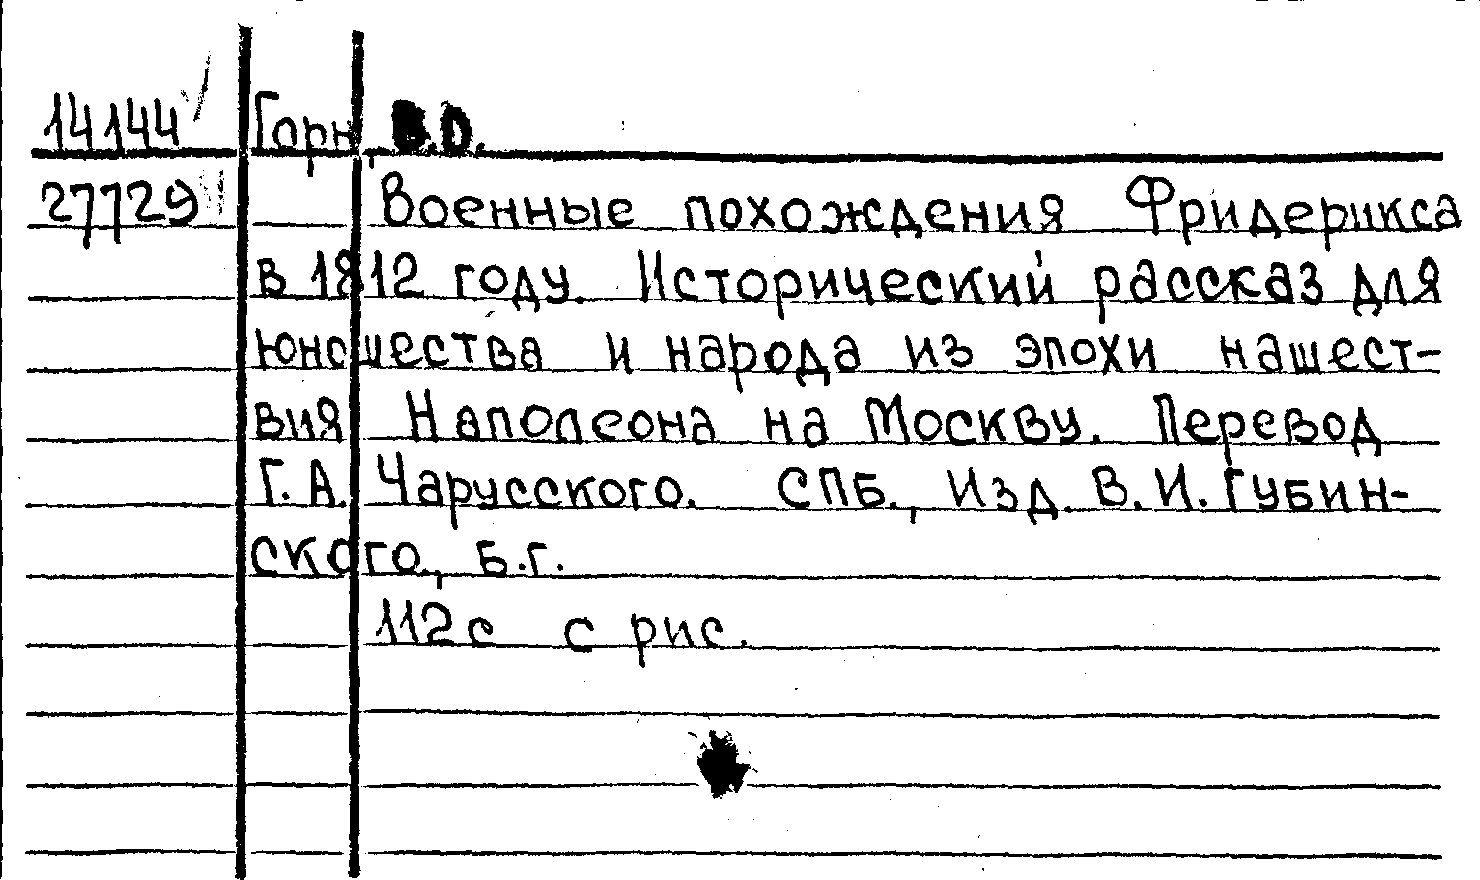 14144 Горн В.О.
27729 Военные похождения Фридерикса
в 1812 году. Исторический рассказ для
юношества и народа из эпохи нашест-
вия Наполеона на Москву. Перевод
Г.А. Чарусского. СПБ., Изд. В.И. Губин-
ского, Б.г.
112с с рис.